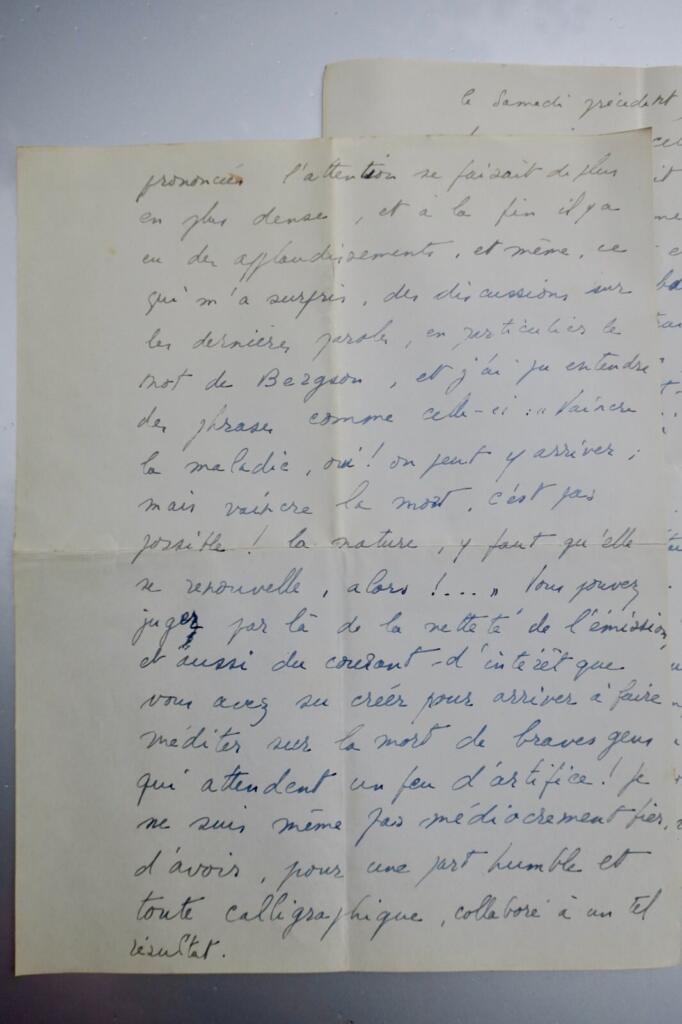 le Samedi précédent
prononcées l'attention se faisait de plus
en plus dense, et à la fin il y a
eu des applaudissements, et même, ce
qui m'a surpris, des discussions sur
les dernières paroles, en particulier le
mot de Bergson, et j'ai pu entendre
des phrases comme celle-ci : "Vaincre
la maladie, oui! on peut y arriver;
mais vaincre la mort, c'est pas
possible! la nature, y faut qu'elle
se renouvelle, alors !...." Vous pouvez
juger par là de la netteté de l'émission,
et aussi du courant d'intérêt que
vous avez su créer pour arriver à faire
méditer sur la mort de braves gens
qui attendent un feu d'artifice! Je
ne suis même pas médiocrement fier,
d'avoir, pour une part humble et
toute calligraphique, collaboré à un tel
résultat.